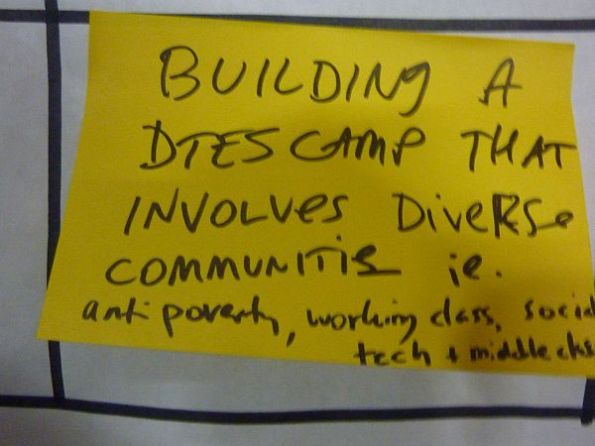 BUILDING A
DTES CAMP THAT
INVOLVES DIVERSE
COMMUNITIE ie.
anti poverty, working class, social
tech + middle clss